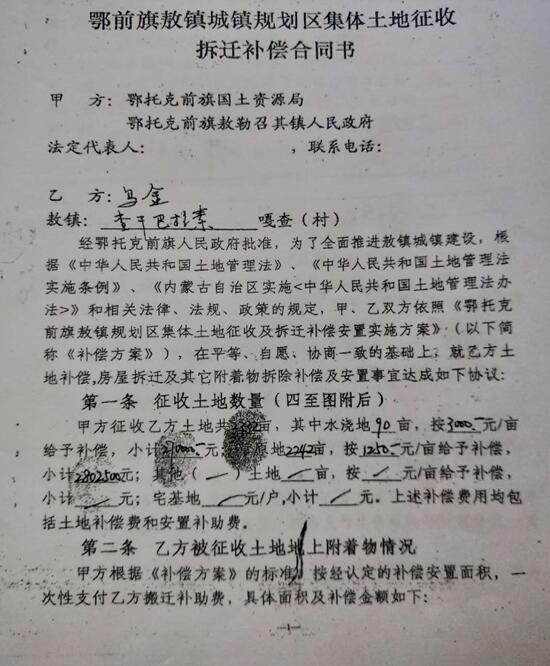 鄂前旗敖镇城镇规划区集体土地征收
拆迁补偿合同书
甲 方：鄂托克前旗国土资源局
鄂托克前旗敖勒召其镇人民政府
法定代表人： ，联系电话：
乙 方：乌金
敖镇：查干巴拉素 嘎查（村）
经鄂托克前旗人民政府批准，为了全面推进敖镇城镇建设，根
据《中华人民共和国土地管理法》、《中华人民共和国土地管理法
实施条例》、《内蒙古自治区实施<中华人民共和国土地管理法办
法>》和相关法律、法规、政策的规定，甲、乙双方依照《鄂托克
前旗敖镇规划区集体土地征收及拆迁补偿安置实施方案》（以下简
称《补偿方案》），在平等、自愿、协商一致的基础上，就乙方土
地补偿,房屋拆迁及其它附着物拆除补偿及安置事宜达成如下协议：
第一条 征收土地数量（四至图附后）
甲方征收乙方土地共2332亩，其中水浇地90亩，按3000元/亩
给予补偿，小计270000元；草原地2242亩，按1250元/亩给予补偿，
小计2802500元；其他（一）土地 亩，按 元/亩给予补偿，
小计 元；宅基地 元/户,小计 元。上述补偿费用均包
括土地补偿费和安置补助费。
第二条 乙方被征收土地地上附着物情况
甲方根据《补偿方案》的标准，按经认定的补偿安置面积，一
次性支付乙方搬迁补助费，具体面积及补偿金额如下：
-1-